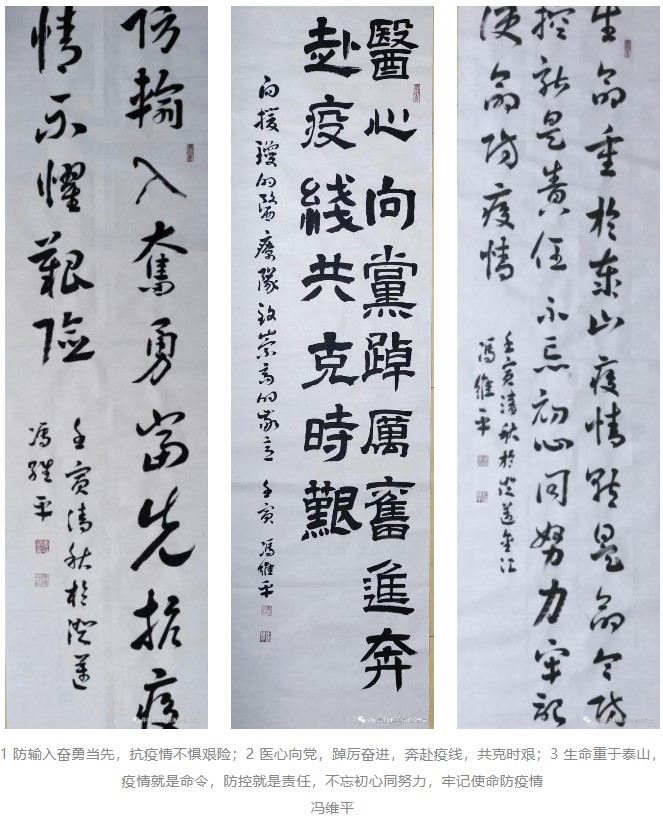 防輸入奮勇當先抗疫
情不懼艱險
壬寅清秋於澄蓮
馮維平
醫心向黨踔厲奮進奔
赴疫綫共克時艱
向援瓊的醫療隊致崇高的敬意 壬寅 馮維平
生命重於泰山疫情就是命令防
控就是責任不忘初心同努力牢記
使命防疫情
壬寅清秋於澄蓮金江
馮維平
1 防输入奋勇当先，抗疫情不惧艰险；2 医心向党，踔厉奋进，奔赴疫线，共克时艰；3 生命重于泰山，
疫情就是命令，防控就是责任，不忘初心同努力，牢记使命防疫情
冯维平